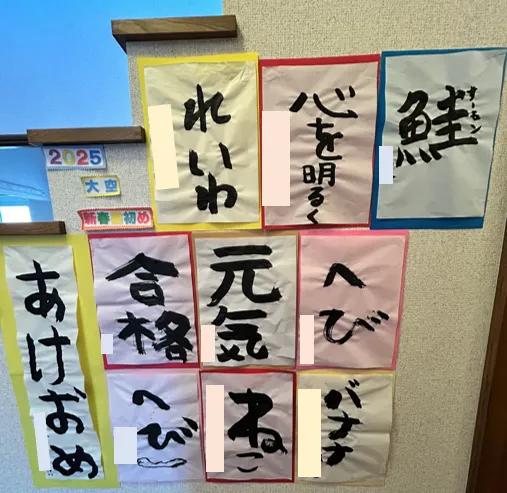 れいわ
心を明るく
鮭
さーもん
2025
大空
新春書初め
あけおめ
合格
元気
へび
へび
ねこ
バナナ